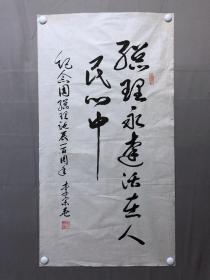 总理永远活在人
民心中
纪念周总理诞辰一百周年